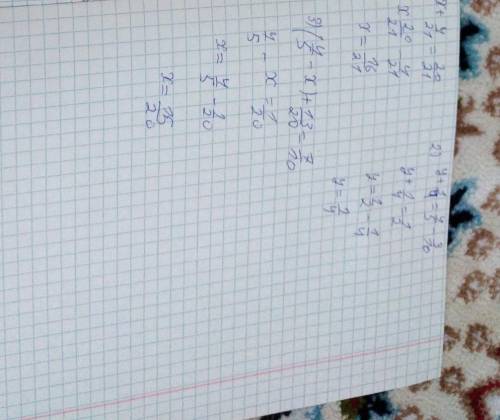 x + 4/21 = 20/21
x 20/21 4/21
x = 16/21
2) y + 1/4 = 4/5 - 3/10
y + 1/4 = 1/2
y = 1/2 - 1/4
y = 1/4
3) (4/5 - x) + 13/20 = 7/10
4/5 - x = 1/20
x = 4/5 - 1/20
x = 15/20